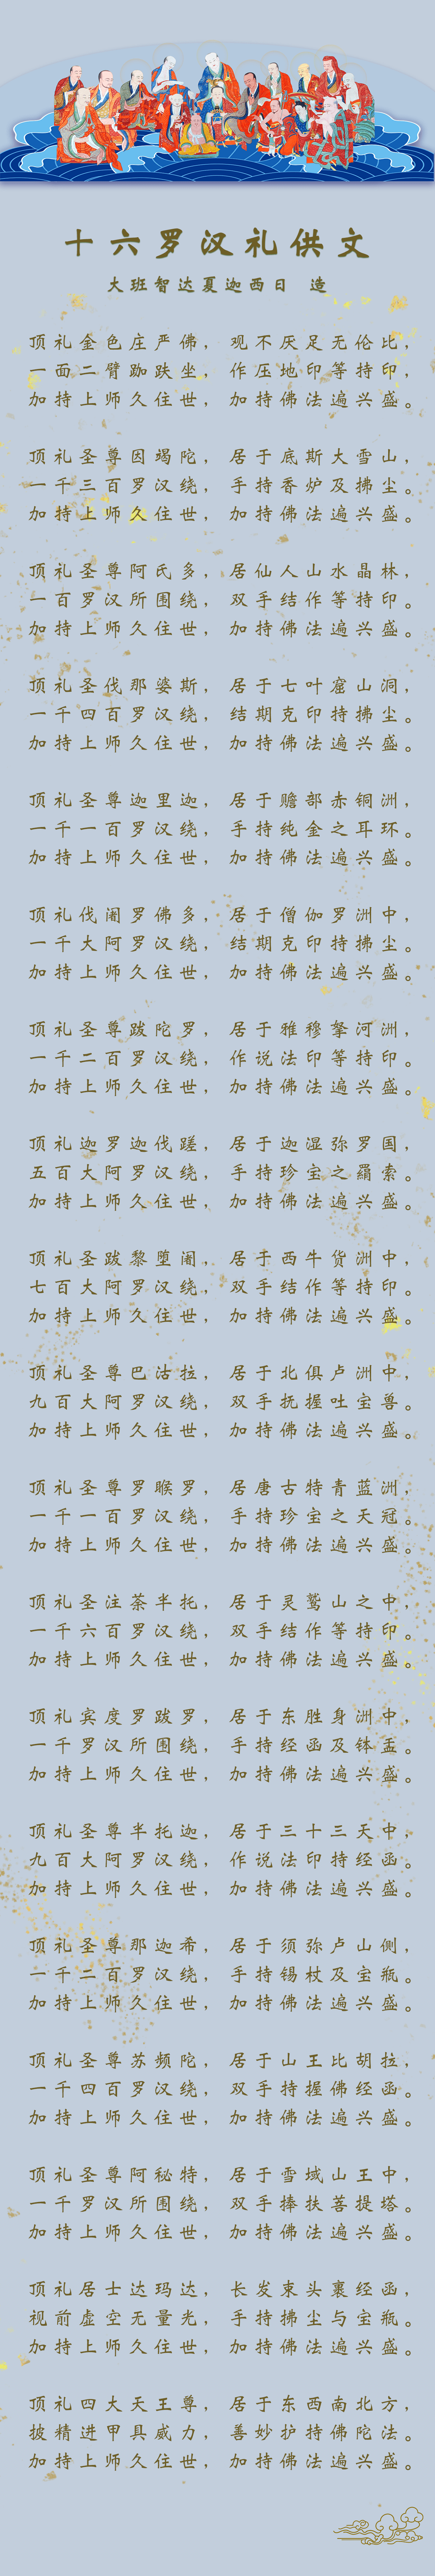 十六罗汉礼供文
大班智达夏迦西日 造
顶礼金色庄严佛， 观不厌足无伦比，
一面二臂跏趺坐， 作压地印等持印，
加持上师久住世， 加持佛法遍兴盛。
顶礼圣尊因竭陀， 居于底斯大雪山，
一千三百罗汉绕， 手持香炉及拂尘。
加持上师久住世， 加持佛法遍兴盛。
顶礼圣尊阿氏多， 居仙人山水晶林，
一百罗汉所围绕， 双手结作等持印。
加持上师久住世， 加持佛法遍兴盛。
顶礼圣伐那婆斯， 居于七叶窟山洞，
一千四百罗汉绕， 结期克印持拂尘。
加持上师久住世， 加持佛法遍兴盛。
顶礼圣尊迦里迦， 居于赡部赤铜洲，
一千一百罗汉绕， 手持纯金之耳环。
加持上师久住世， 加持佛法遍兴盛。
顶礼伐阇罗佛多， 居于僧伽罗洲中，
一千大阿罗汉绕， 结期克印持拂尘。
加持上师久住世， 加持佛法遍兴盛。
顶礼圣尊跋陀罗， 居于雅穆拏河洲，
一千二百罗汉绕， 作说法印等持印。
加持上师久住世， 加持佛法遍兴盛。
顶礼迦罗迦伐蹉， 居于迦湿弥罗国，
五百大阿罗汉绕， 手持珍宝之羂索。
加持上师久住世， 加持佛法遍兴盛。
顶礼圣跋黎堕阇， 居于西牛货洲中，
七百大阿罗汉绕， 双手结作等持印。
加持上师久住世， 加持佛法遍兴盛。
顶礼圣尊巴沽拉， 居于北俱卢洲中，
九百大阿罗汉绕， 双手抚握吐宝兽。
加持上师久住世， 加持佛法遍兴盛。
顶礼圣尊罗睺罗， 居唐古特青蓝洲，
一千一百罗汉绕， 手持珍宝之天冠。
加持上师久住世， 加持佛法遍兴盛。
顶礼圣注荼半托， 居于灵鹫山之中，
一千六百罗汉绕， 双手结作等持印。
加持上师久住世， 加持佛法遍兴盛。
顶礼宾度罗跋罗， 居于东胜身洲中，
一千罗汉所围绕， 手持经函及钵盂。
加持上师久住世， 加持佛法遍兴盛。
顶礼圣尊半托迦， 居于三十三天中，
九百大阿罗汉绕， 作说法印持经函。
加持上师久住世， 加持佛法遍兴盛。
顶礼圣尊那迦希， 居于须弥卢山侧，
一千二百罗汉绕， 手持锡杖及宝瓶。
加持上师久住世， 加持佛法遍兴盛。
顶礼圣尊苏频陀， 居于山王比胡拉，
一千四百罗汉绕， 双手持握佛经函。
加持上师久住世， 加持佛法遍兴盛。
顶礼圣尊阿秘特， 居于雪域山王中，
一千罗汉所围绕， 双手捧扶菩提塔。
加持上师久住世， 加持佛法遍兴盛。
顶礼居士达玛达， 长发束头裹经函，
视前虚空无量光， 手持拂尘与宝瓶。
加持上师久住世， 加持佛法遍兴盛。
顶礼四大天王尊， 居于东西南北方，
披精进甲具威力， 善妙护持佛陀法。
加持上师久住世， 加持佛法遍兴盛。